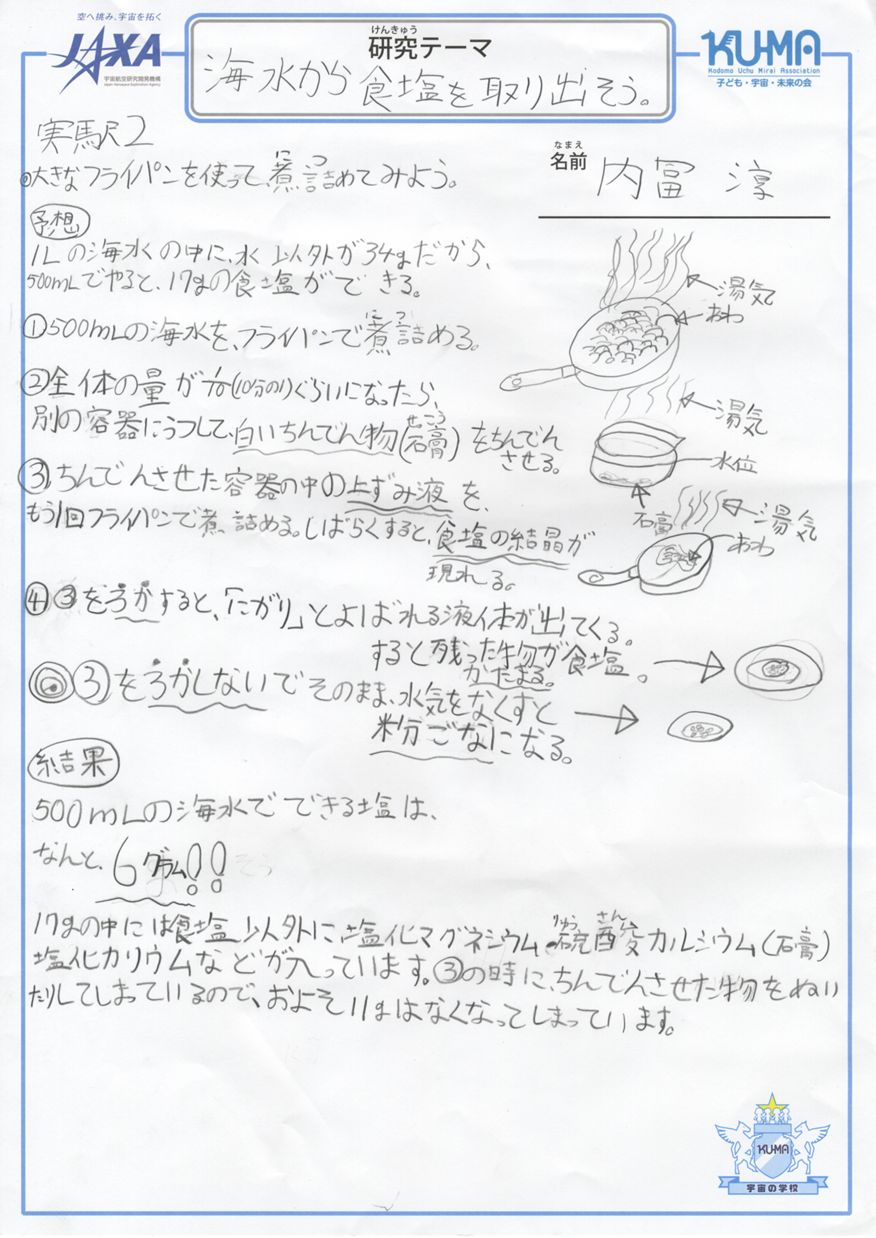 空へ挑み、宇宙を拓く
JAXA
宇宙航空研究開発機構
Japan Aerospace Exploration Agency
けんきゅう
研究テーマ
海水から食塩を取り出そう。
KU-MA
Kodomo Uchu Mirai Association
子ども・宇宙・未来の会
実験2
なまえ
名前 内冨 淳
に つ
◎大きなフライパンを使って、煮詰めてみよう。
予想
1Lの海水の中に、水以外が34gだから、
500mLでやると、17gの食塩ができる。
に つ
①500mLの海水を、フライパンで煮詰める。
湯気
あわ
②全体の量が1/10(10分の1)ぐらいになったら、
せっこう
別の容器にうつして、白いちんでん物(石膏)をちんでん
させる。
湯気
水位
石膏
③ちんでんさせた容器の中の上ずみ液を、
もう1回フライパンで煮詰める。しばらくすると、食塩の結晶が
現れる。
湯気
あわ
④③をろかすると、「にがり」とよばれる液体が出てくる。
すると残った物が食塩。
かたまる。
◎③をろかしないでそのまま、水気をなくすと
粉ごなになる。
結果
500mLの海水でできる塩は、
なんと、6グラム!!
りゅう さん
17gの中には食塩以外に塩化マグネシウム、硫酸カルシウム(石膏)
塩化カリウムなどが入っています。③の時に、ちんでんさせた物をぬい
たりしてしまっているので、およそ11gはなくなってしまっています。
KU-MA
宇宙の学校